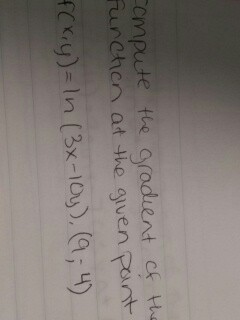 compute the gradient of the
function at the given point
f(x,y) = ln (3x-10y), (9,-4)